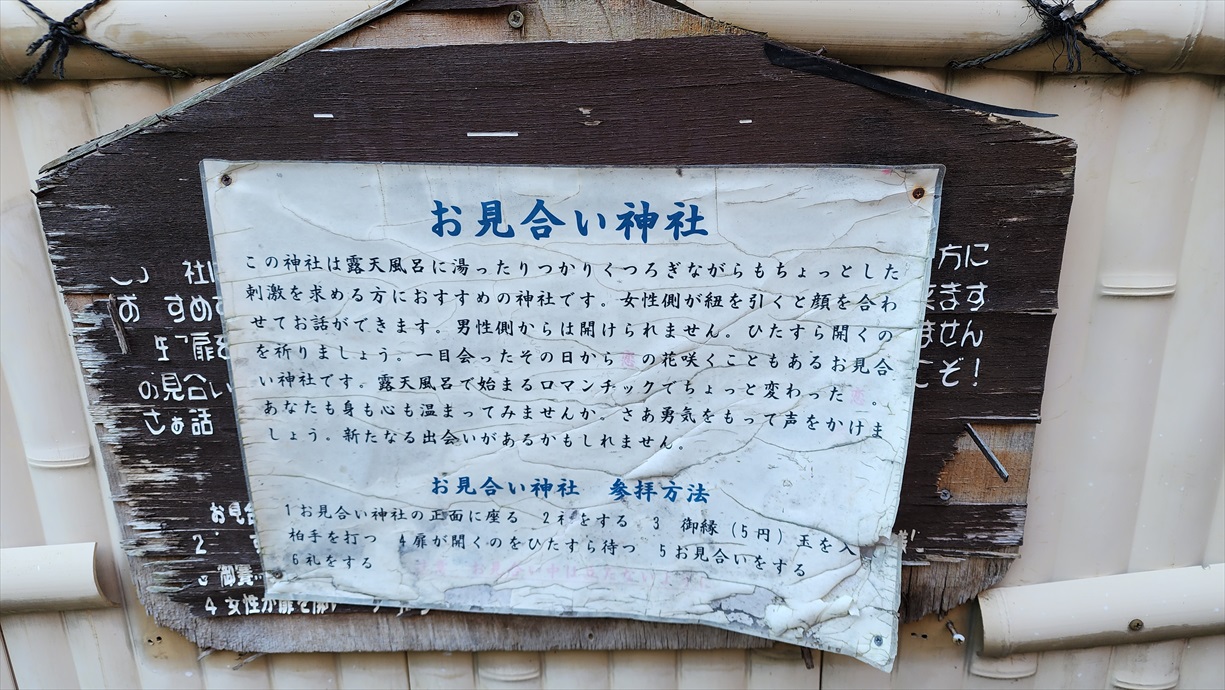 お見合い神社
この神社は露天風呂に湯ったりつかりくつろぎながらもちょっとした
刺激を求める方におすすめの神社です。女性側が紐を引くと顔を合わ
せてお話ができます。男性側からは開けられません。ひたすら開くの
を祈りましょう。一目会ったその日から恋の花咲くこともあるお見合
い神社です。露天風呂で始まるロマンチックでちょっと変わった恋。
あなたも身も心も温まってみませんか。さあ勇気をもって声をかけま
しょう。新たなる出会いがあるかもしれません。
お見合い神社 参拝方法
1お見合い神社の正面に座る 2礼をする 3 御縁(5円)玉を入
柏手を打つ 4扉が開くのをひたすら待つ 5お見合いをする
6礼をする お見合い中は立たない
社
方に
おすすめ
ます
扉を
ません
の見合い
こぞ!
さぁ話
お見合
2
3 御
4 女性が扉を開